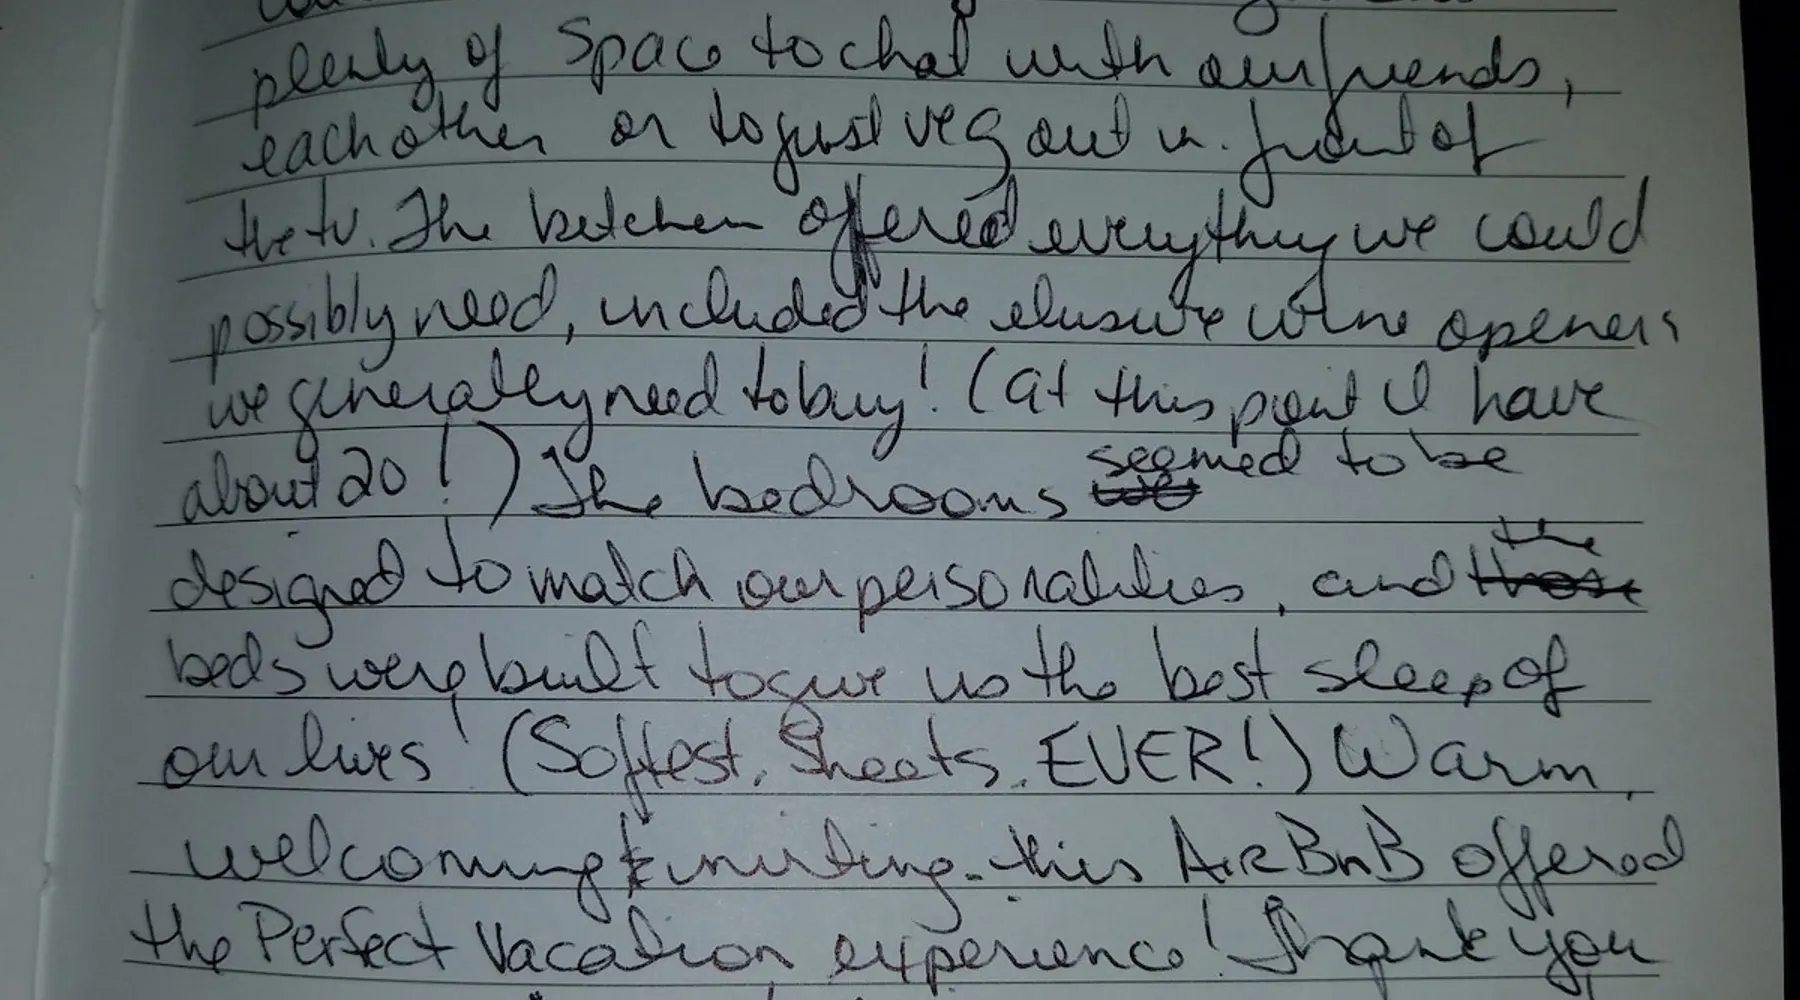 plenty of space to chat with our friends,
each other or to just veg out in front of
the tv. The kitchen offered everything we could
possibly need, included the elusive wine openers
we generally need to buy! (at this point I have
about 20!) The bedrooms seemed to be
designed to match our personalities, and the
beds were built to give us the best sleep of
our lives! (Softest. Sheets. EVER!) Warm,
welcoming & inviting - this AIRBnB offered
the Perfect Vacation experience! Thank you